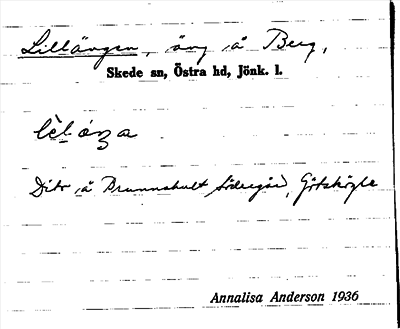 Lillängen, äng å Berg,
Skede sn, Östra hd, Jönk. l.
Dito å Brunnshult Södregård,
Annalisa Anderson 1936